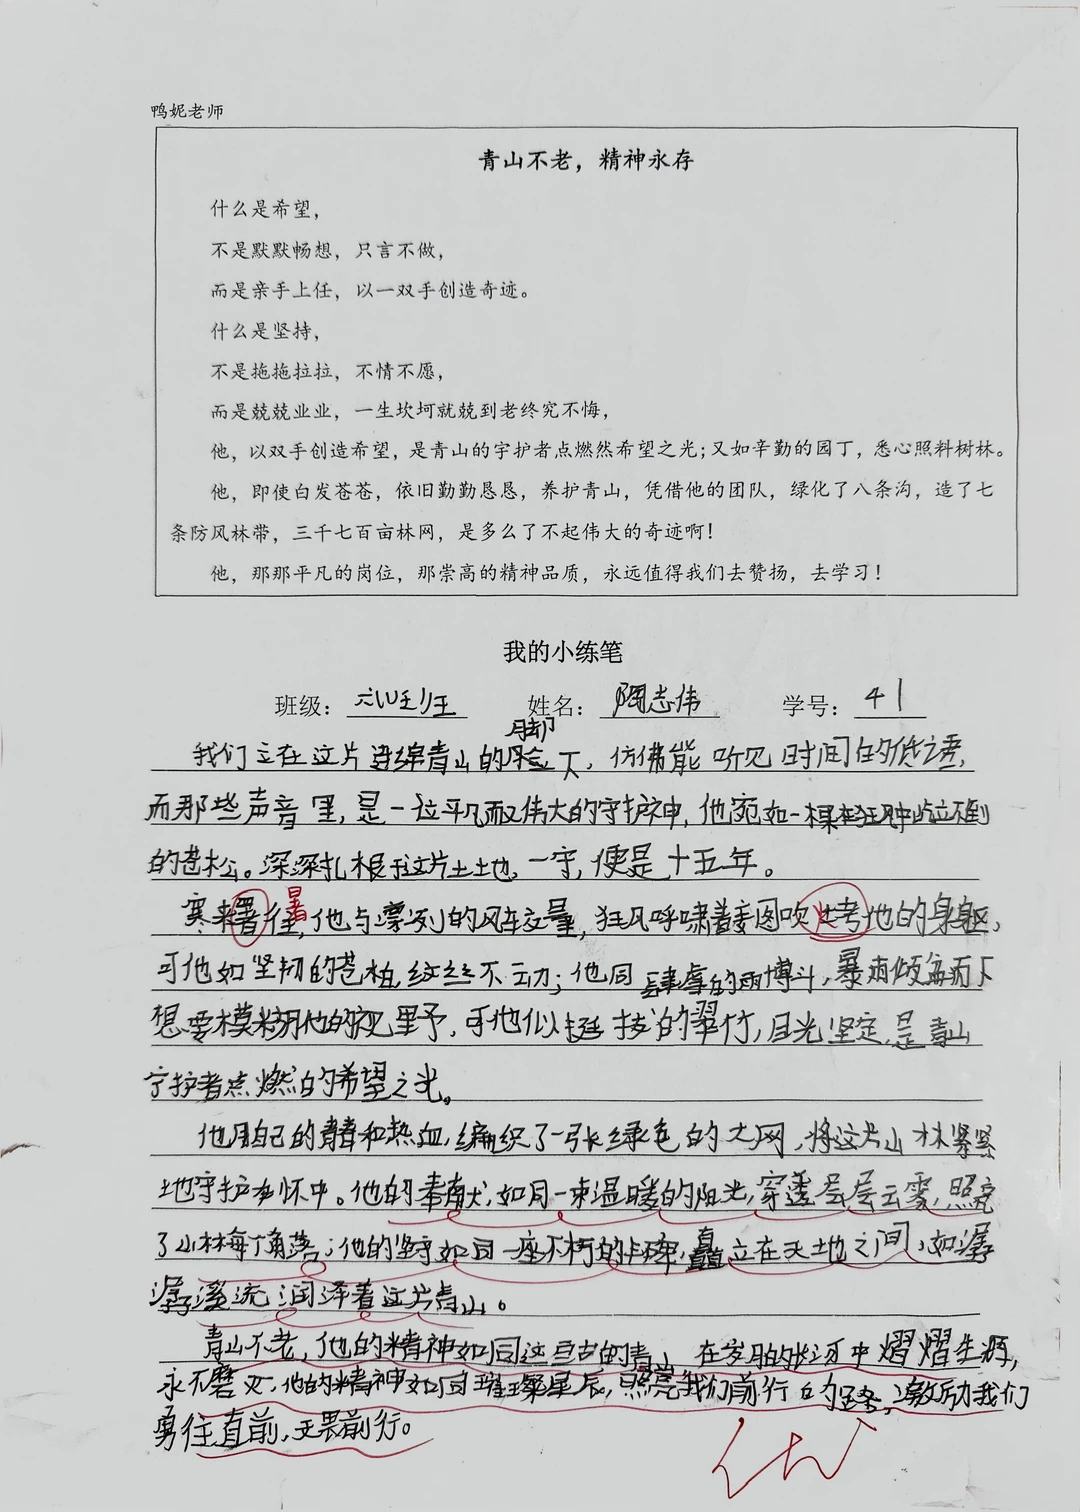 鸭妮老师
青山不老，精神永存
什么是希望，
不是默默畅想，只言不做，
而是亲手上任，以一双手创造奇迹。
什么是坚持，
不是拖拖拉拉，不情不愿，
而是兢兢业业，一生坎坷就兢到老终究不悔，
他，以双手创造希望，是青山的宇护者点燃然希望之光；又如辛勤的园丁，悉心照料树林。
他，即使白发苍苍，依旧勤勤恳恳，养护青山，凭借他的团队，绿化了八条沟，造了七
条防风林带，三千七百亩林网，是多么了不起伟大的奇迹啊！
他，那那平凡的岗位，那崇高的精神品质，永远值得我们去赞扬，去学习！
我的小练笔
班级： 姓名：陶志伟 学号：41
脚
我们立在这片连绵青山的下，仿佛能听见时间的低语，
而那些声音里，是一位平凡而又伟大的守护神，他宛如一棵在狂风中屹立不倒
的苍松。深深扎根于这片土土地，一守，便是十五年。
暑
寒来暑往，他与凛冽的风车交量，狂风呼啸着委图吹他的身躯，
可他如坚韧的苍柏，纹丝不动；他同肆虐的雨博斗，暴雨倾盆而下
想要模糊他的视野，可他似挺拔的翠竹，目光坚定，是青山
守护者点燃的希望之光。
他用自己的青春和热血，编织了一张绿色的大网，将这片山林紧紧
地守护在怀中。他的奉献，如同一束温暖的阳光，穿透层层云雾，照亮
了山林每个角落；他的坚守如同一座不朽的丰碑，直立在天地之间，如潺
潺溪流润泽着这片青山。
青山不老，他的精神如同这亘古的青山，在岁月的长河中熠熠生辉，
永不磨灭，他的精神如同璀璨星辰，照亮我们前行的路，激励我们
勇往直前，无畏前行。
优